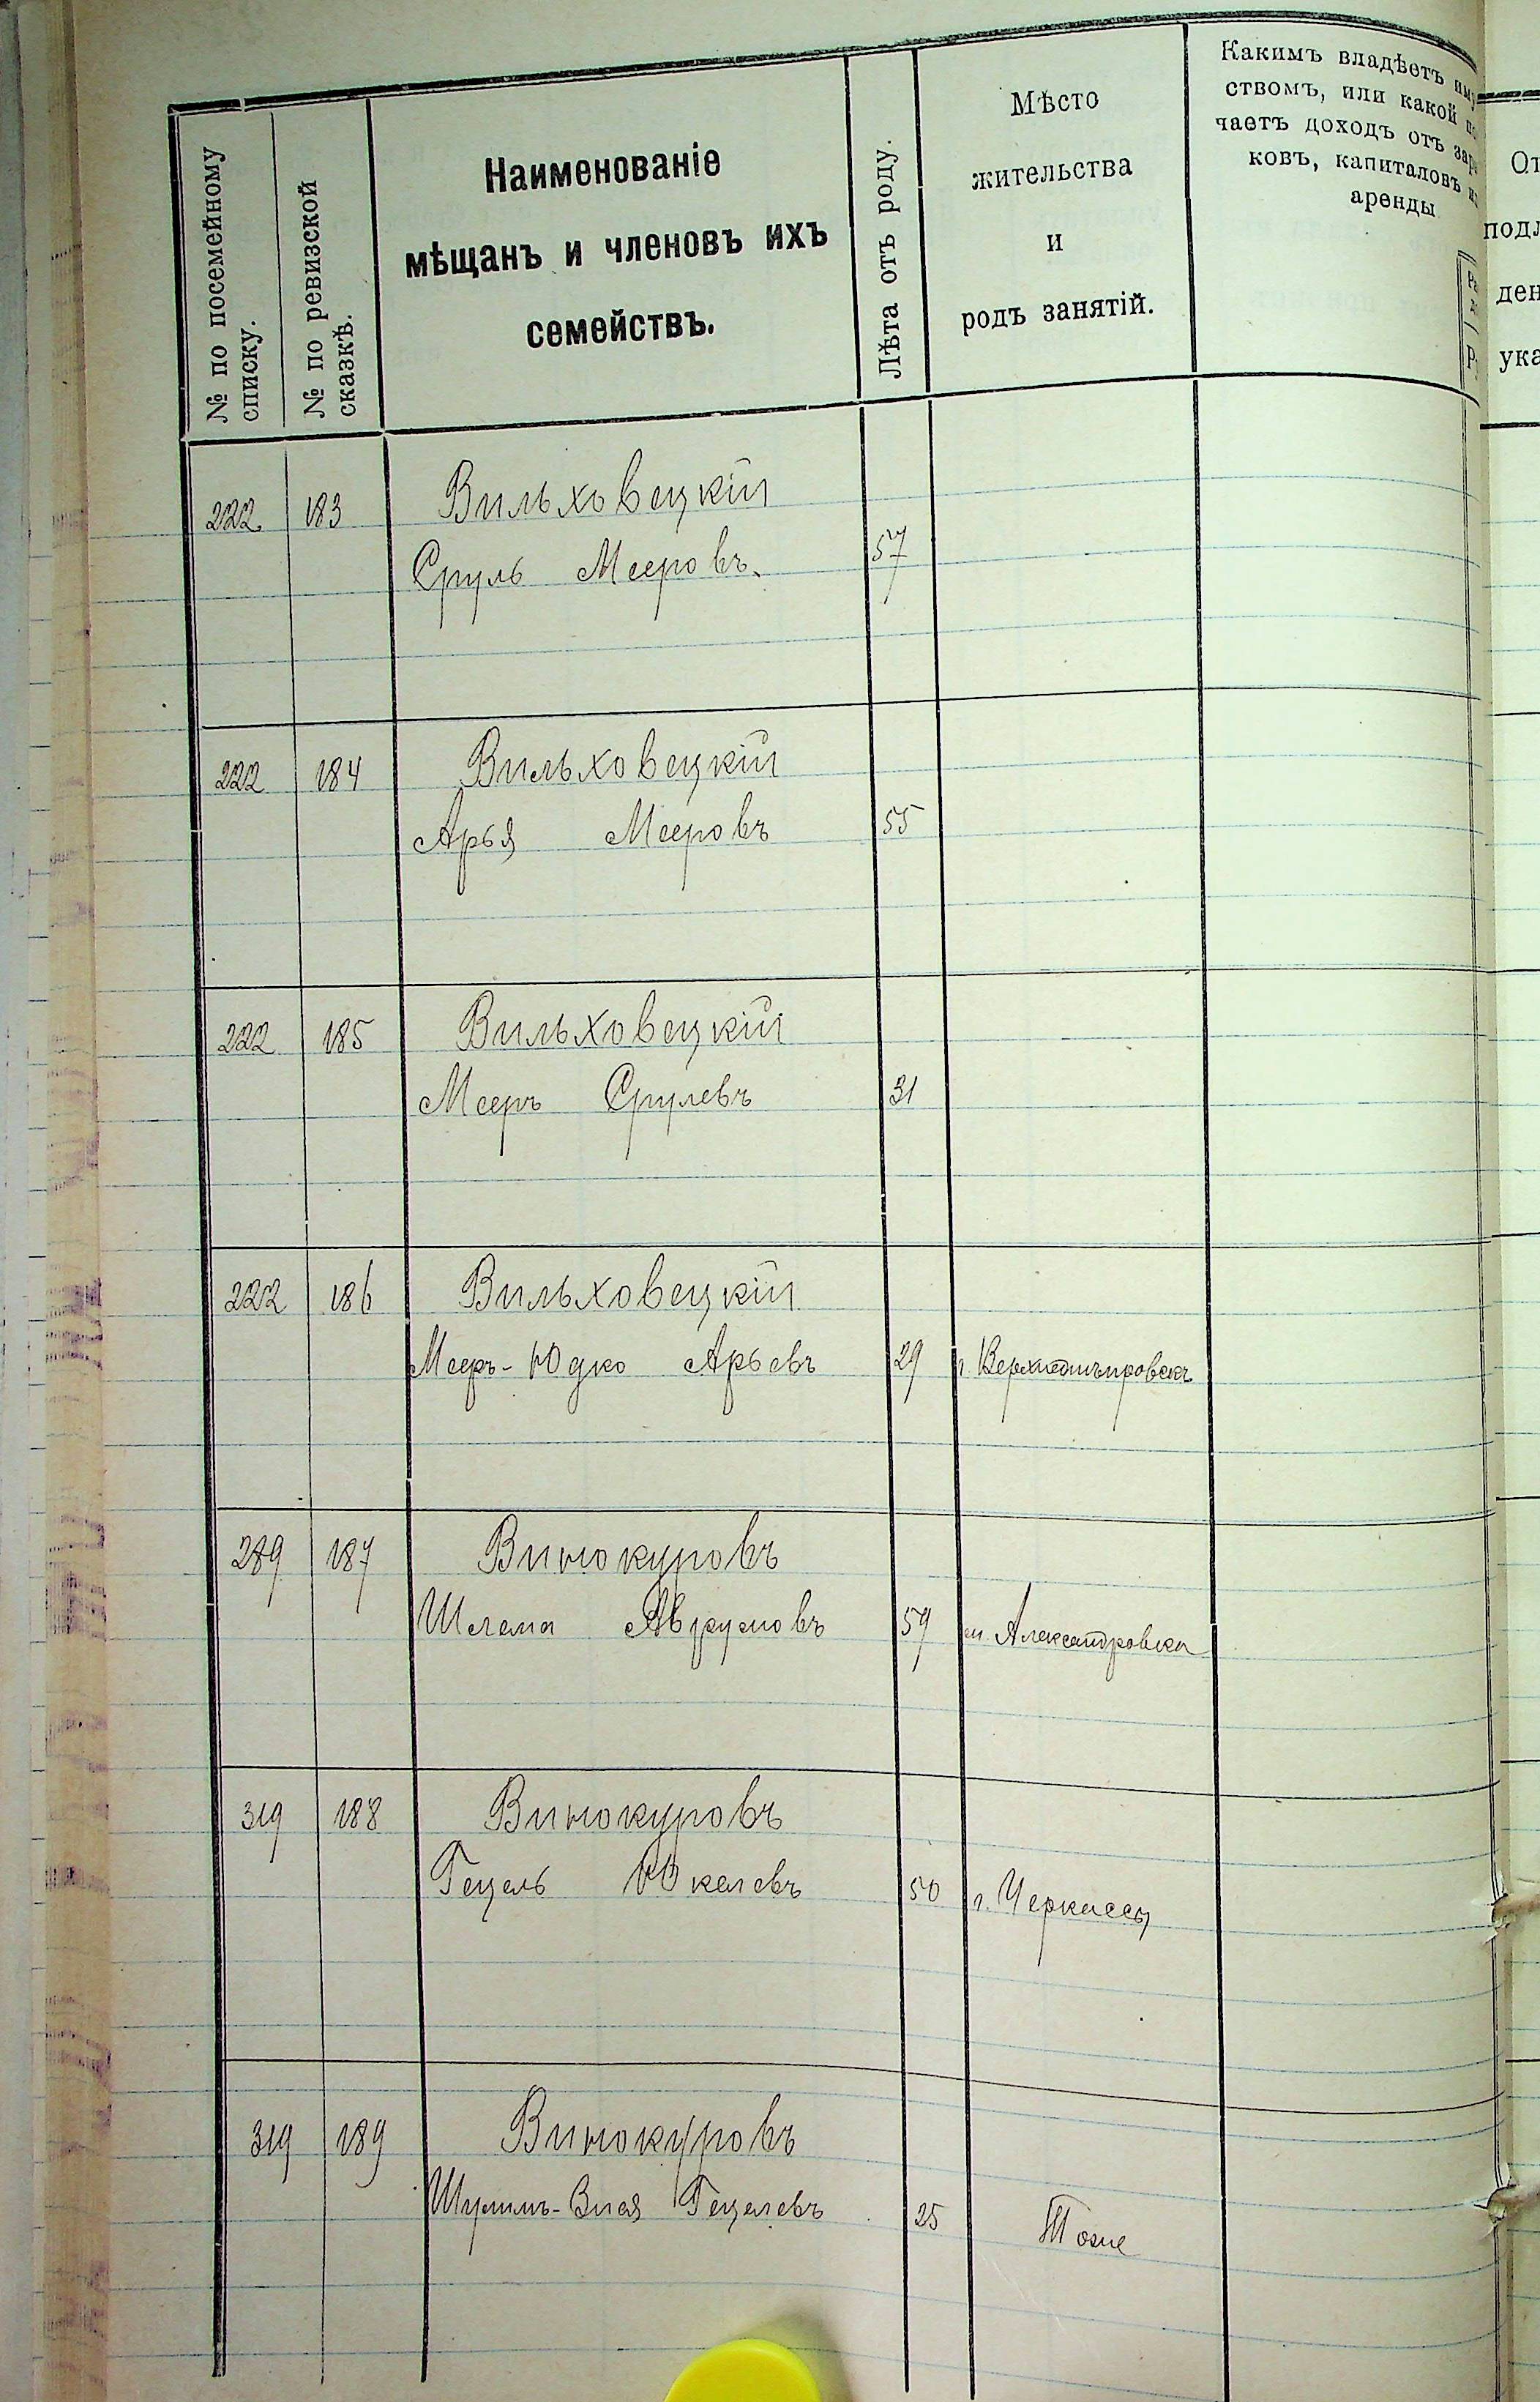 № по посемейному
списку.
№ по ревизской
сказкѣ.
Наименованіе
мѣщанъ и членовъ ихъ
семействъ.
Лѣта отъ роду.
Мѣсто
жительства
и
родъ занятій.
Какимъ владѣетъ
ствомъ, или какой
чаетъ доходъ отъ
ковъ, капиталовъ
аренды
222 183 Вильховецкій
Сруль Мееровъ 57
222 184 Вильховецкій
Арья Мееровъ 55
222 185 Вильховецкій
Мееръ Срулевъ 31
222 186 Вильховецкій
Мееръ-Юдко Арьевъ 29 г. Верхнеднѣпровскъ
289 187 Винокуровъ
Шлема Аврумовъ 59 м. Александровка
319 188 Винокуровъ
Гецель Юкелевъ 50 г. Черкассы
319 189 Винокуровъ
Гецелевъ 25 Тоже